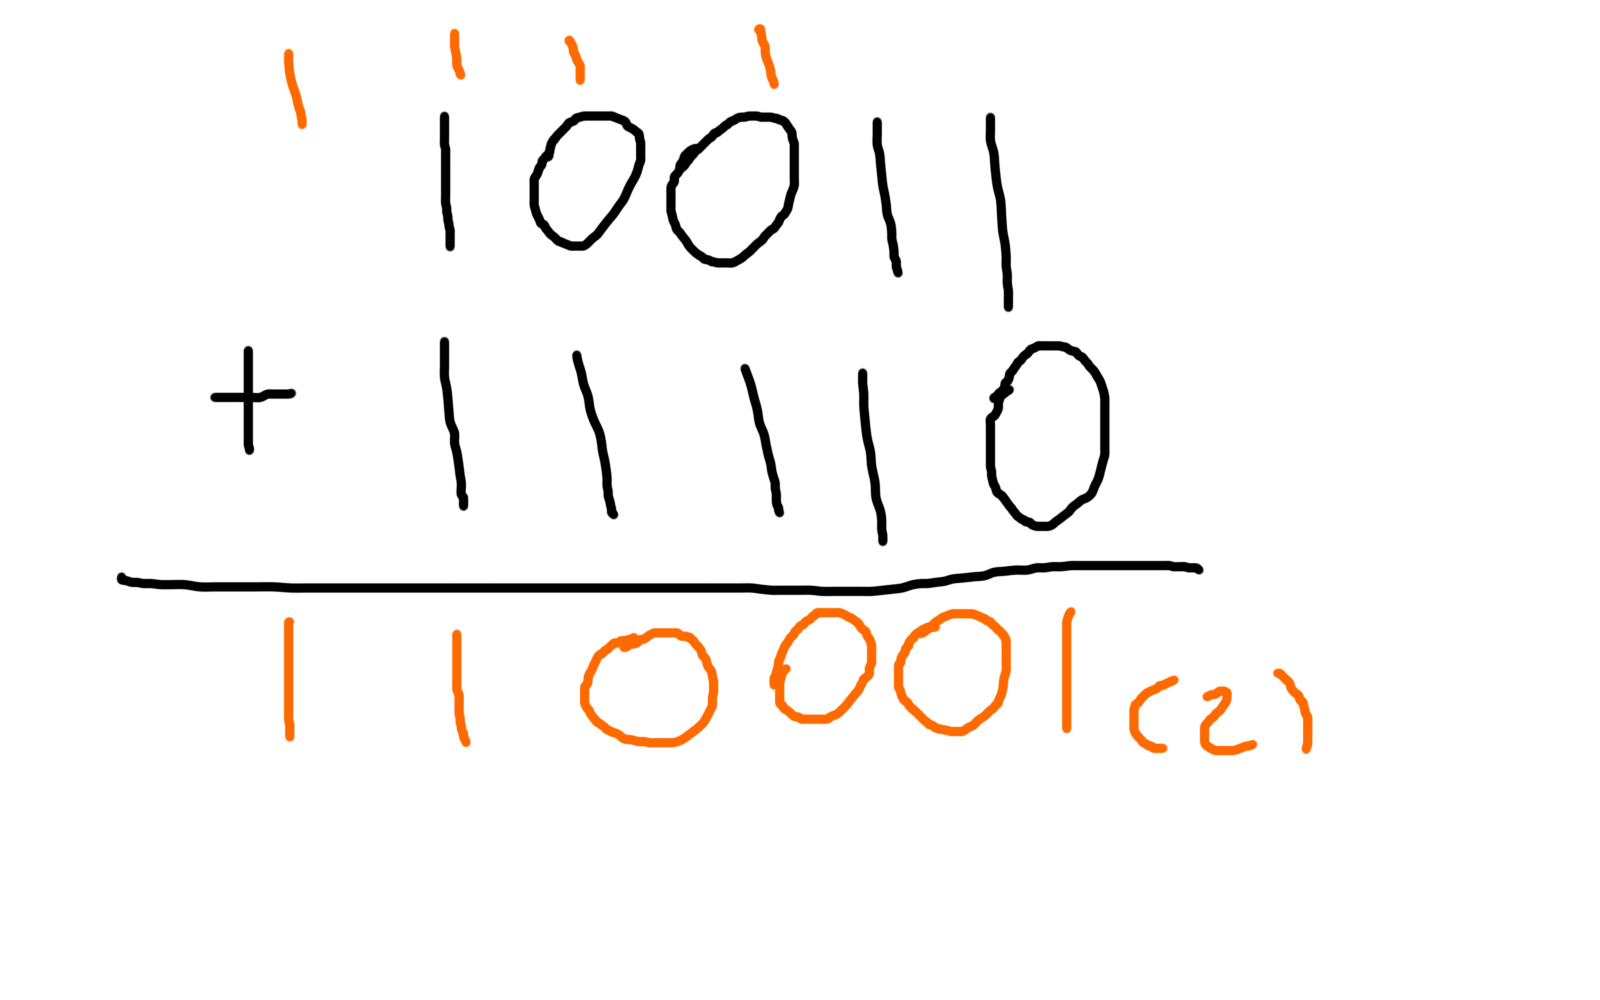 1 1 1 1
10011
+ 11110
110001(2)